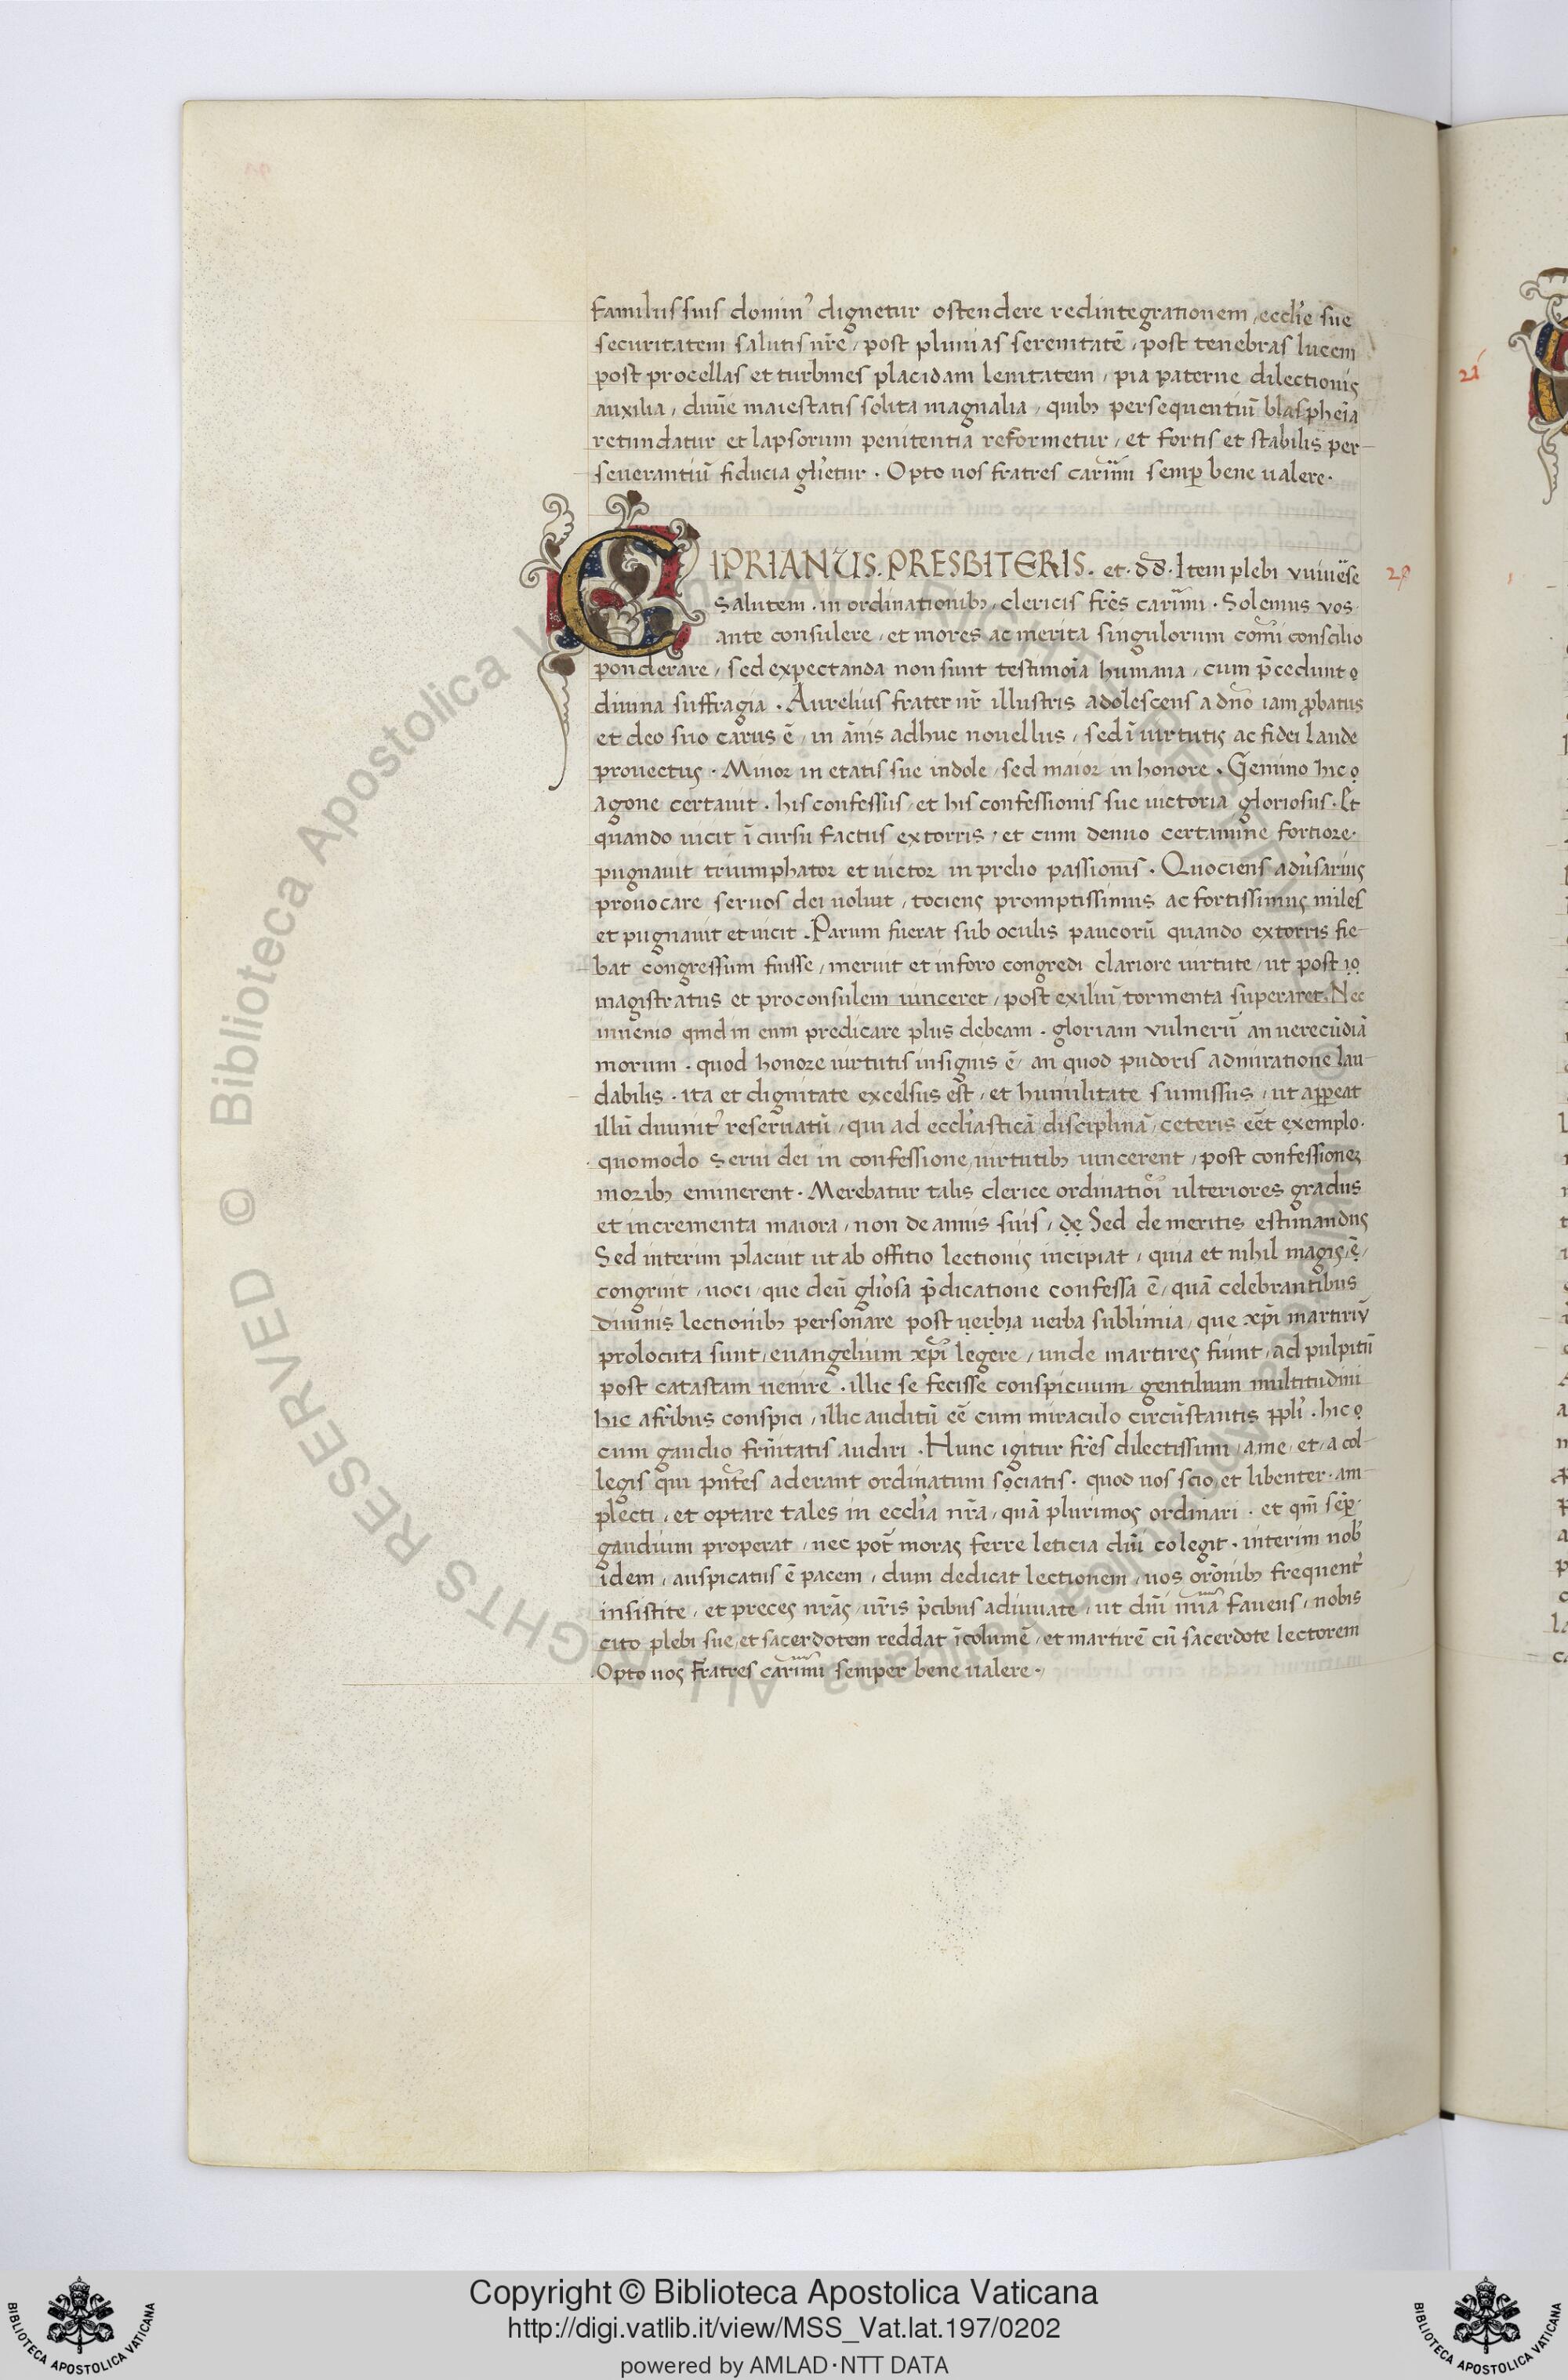 familus suis domin᾽ dignetur ostendere redintegrationem, eccl̓ie sue
securitatem salutis nr̄e, post pluuias serenitatē, post tenebras lucem
post procellas et turbines placidam lenitatem, pia paterne dilectionis
auxilia, diuīe maiestatis solita magnalia, quibꝫ persequentiū blasphēia
retundatur et lapsorum penitentia reformetur, et fortis et stabilis per-
seuerantiū fiducia gl̓ietur. Opto uos fratres carīmi semꝑ bene ualere.
CIPRIANUS. PRESBITERIS. et. dd. Item plebi vniuēse 28
Salutem. in ordinationibꝫ, clericis frēs carīmi. Solemus vos
ante consulere, et mores ac merita singulorum cōmi conscilio
ponderare, sed expectanda non sunt testimōia humana, cum p̄cedunt o
diuina suffragia. Aurelius frater nr̄ illustris adolescens a dn̄o iam ꝓbatus
et deo suo carus ē, in ānis adhuc nouellus, sed ī uirtutis ac fidei laude
prouectus. Minor in etatis sue indole, sed maior in honore. Gemino hic o
agone certauit. his confessus et his confessionis sue uictoria gloriosus. Et
quando uicit ī cursu factus extorris, et cum denuo certamine fortiore.
pugnauit triumphator et uictor in prelio passionis. Quociens adu̓sarius
prouocare seruos dei uoluit, tociens promptissimus ac fortissimus miles
et pugnauit et uicit. Parum fuerat sub oculis paucorū quando extorris fie-
bat congressum fuisse, meruit et in foro congredi clariore uirtute, ut post io
magistratus et proconsulem uinceret, post exiliū tormenta superaret. Nec
inuenio quid in eum predicare plus debeam. gloriam vulnerū an uerecūdiā
morum. quod honore uirtutis insignis ē, an quod pudoris admiratione lau-
dabilis. ita et dignitate excelsus est, et humilitate summissus, ut apꝑeat
illū diuinit᾽ reseruatū, qui ad eccl̓iasticā disciplinā, ceteris eēt exemplo.
quomodo serui dei in confessione uirtutibꝫ uincerent, post confessiones
moribꝫ eminerent. Merebatur talis clerice ordinatiōi ulteriores gradus
et incrementa maiora, non de annis suis, de Sed de meritis estimandus
Sed interim placuit ut ab offitio lectionis incipiat, quia et nihil magis, ē,
congruit, uoci, que deū gl̓iosa p̄dicatione confessa ē, quā celebrantibus
diuinis lectionibꝫ personare post uerbia uerba sublimia, que xp̄i martiriū
prolocuta sunt, euangelium xp̄i legere, unde martires fiunt, ad pulpitū
post catastam uenire. illic se fecisse conspicuum gentilium multitudini
hic afribus conspici, illic auditū eē cum miraculo circūstantis ppl̓i. hic o
cum gaudio frn̄itatis audiri. Hunc igitur frēs dilectissimi, a me, et, a col-
legis qui pn̄tes aderant ordinatum sociatis. quod uos scio, et libenter. am-
plecti, et optare tales in eccl̓ia nr̄a, quā plurimos ordinari. et qm̄ sēꝑ.
gaudium properat, nec pot̄ moras ferre leticia dn̄i colegit. interim nob᾽
idem, auspicatus ē pacem, dum dedicat lectionem, uos orōnibꝫ frequent᾽
insistite, et preces nrās, ur̄is p̄cibus adiuuate, ut dn̄i mīa fauens, nobis
cito plebi sue, et sacerdotem reddat īcolumē, et martirē cū sacerdote lectorem
Opto uos Fratres carīmi semper bene ualere.
21
© Biblioteca Apostolica Vaticana ALL RIGHTS RESERVED
Copyright © Biblioteca Apostolica Vaticana
http://digi.vatlib.it/view/MSS_Vat.lat.197/0202
powered by AMLAD·NTT DATA
BIBLIOTECA APOSTOLICA VATICANA
BIBLIOTECA APOSTOLICA VATICANA